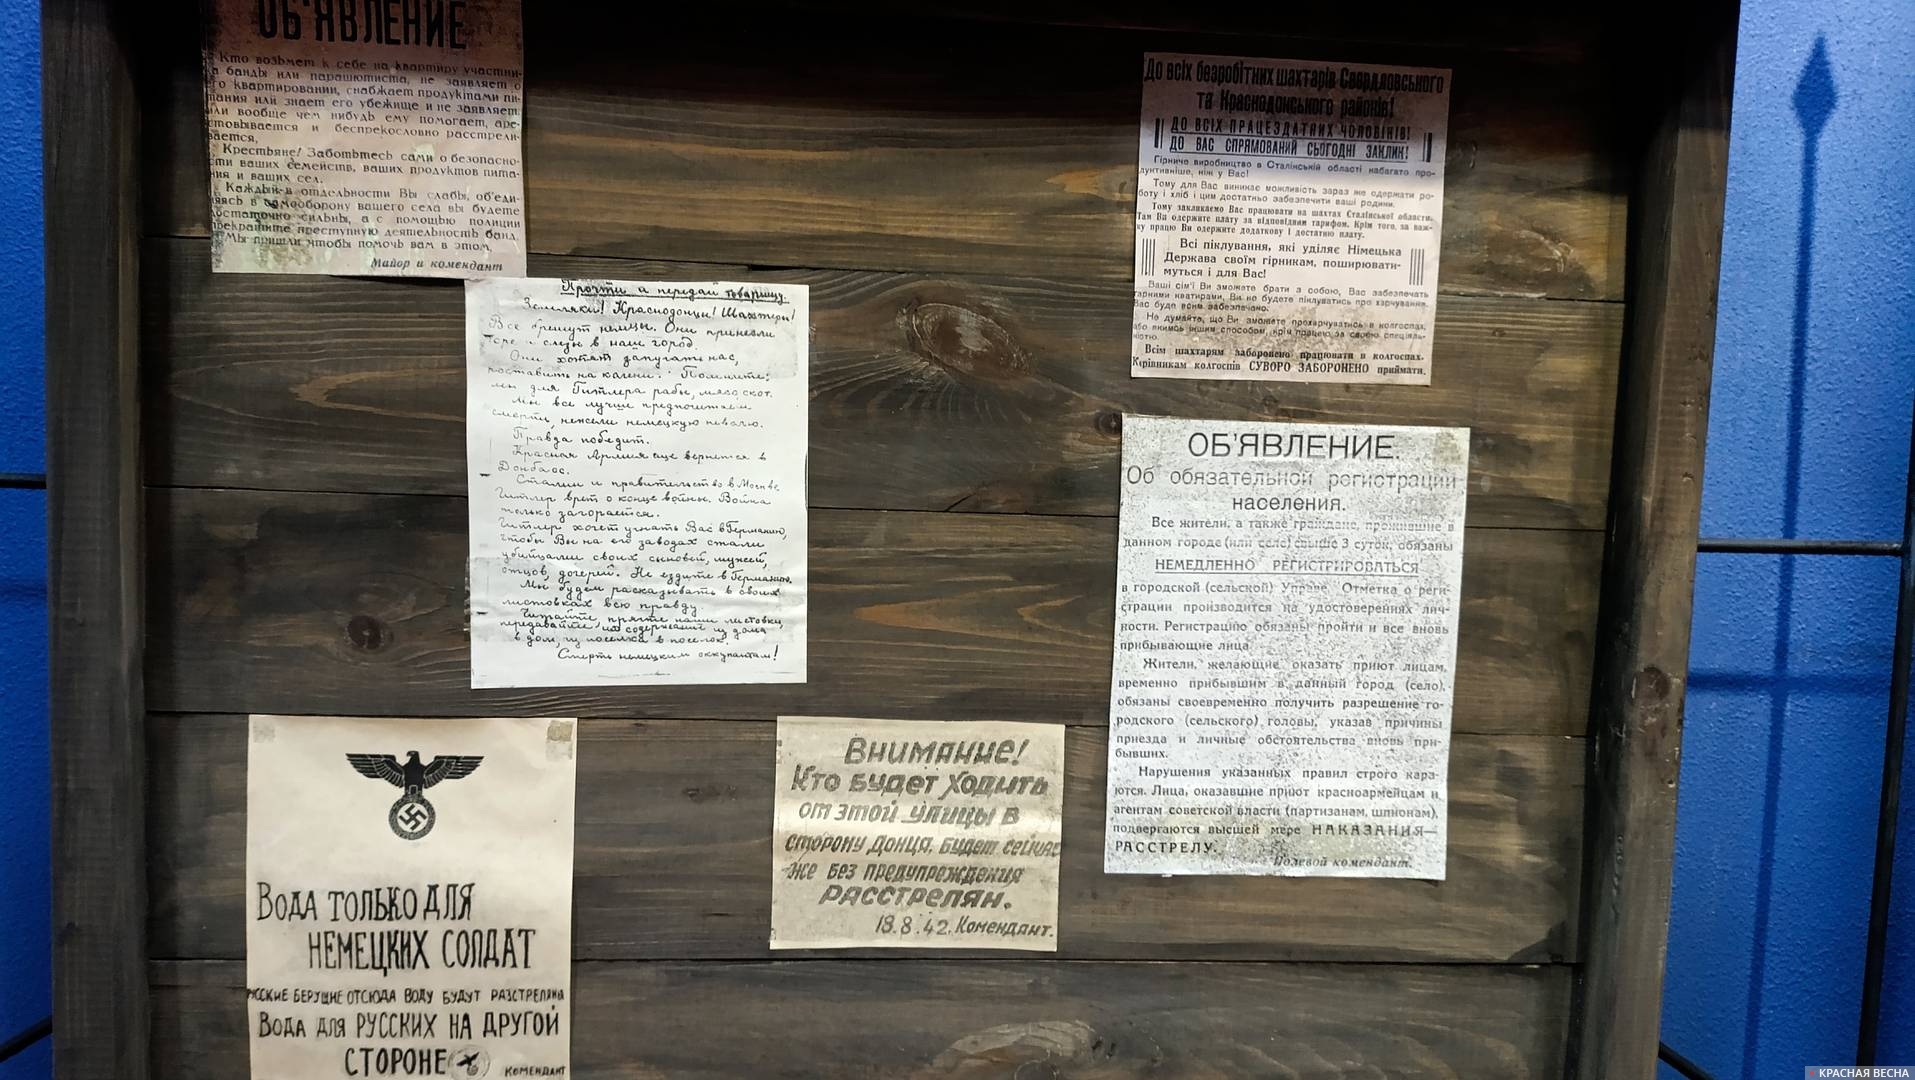 ОБ'ЯВЛЕНИЕ
Кто возьмет к себе на квартиру участни-
банды или парашютиста, не заявляет о
его квартировании, снабжает продуктами пи-
тания или знает его убежище и не заявляет,
или вообще чем нибудь ему помогает, аре-
стовывается и беспрекословно расстрели-
вается,
Крестьяне! Заботьтесь сами о безопасно-
сти ваших семейств, ваших продуктов пита-
ния и ваших сел.
Каждый в отдельности Вы слабы, об'еди-
няясь в самооборону вашего села вы будете
достаточно сильны, а с помощью полиции
прекратите преступную деятельность банд.
Мы пришли чтобы помочь вам в этом,
Майор и комендант
До всіх безробітних шахтарів Свердловського
та Краснодонського районів!
ДО ВСІХ ПРАЦЕЗДАТНИХ ЧОЛОВІКІВ!
ДО ВАС СПРЯМОВАНИЙ СЬОГОДНІ ЗАКЛИК!
Гірниче виробництво в Сталінській області набагато про-
дуктивніше, ніж у Вас!
Тому для Вас виникає можливість зараз же одержати ро-
боту і хліб і цим достатньо забезпечити ваші родини.
Тому закликаємо Вас працювати на шахтах Сталінської області.
Там Ви одержите плату за відповідним тарифом. Крім того, за важ-
ку працю Ви одержите додаткову і достатню плату.
Всі піклування, які уділяє Німецька
Держава своїм гірникам, поширювати-
муться і для Вас!
Ваші сім'ї Ви зможете брати з собою, Вас забезпечать
гарними кватирами, Ви не будете піклуватись про харчування.
Вас буде всім забезпечено.
Не думайте, що Ви зможете прохарчуватись в колгоспах,
або якимсь іншим способом, крім працею за своєю спеціаль-
ністю.
Всім шахтарям заборонено працювати в колгоспах.
Керівникам колгоспів СУВОРО ЗАБОРОНЕНО приймати.
Прочти и передай товарищу.
Земляки! Краснодонцы! Шахтеры!
Все брешут немцы. Они принесли
горе и слезы в наш город.
Они хотят запугать нас,
поставить на колени. Помните:
мы для Гитлера рабы, мясо, скот.
Мы все лучше предпочитаем
смерть, нежели немецкую неволю.
Правда победит.
Красная Армия еще вернется в
Донбасс.
Сталин и правительство в Москве.
Гитлер врет о конце войны. Война
только загорается.
Гитлер хочет угнать Вас в Германию,
чтобы Вы на его заводах стали
убийцами своих сыновей, мужей,
отцов, дочерей. Не ездите в Германию.
Мы будем рассказывать в своих
листовках всю правду.
Читайте, прячте наши листовки,
передавайте их содержание из дома
в дом, из поселка в поселок.
Смерть немецким оккупантам!
ОБ'ЯВЛЕНИЕ.
Об обязательной регистрации
населения.
Все жители, а также граждане, прожившие в
данном городе (или селе) свыше 3 суток, обязаны
НЕМЕДЛЕННО РЕГИСТРИРОВАТЬСЯ
в городской (сельской) Управе. Отметка о реги-
страции производится на удостоверениях лич-
ности. Регистрацию обязаны пройти и все вновь
прибывающие лица
Жители, желающие оказать приют лицам,
временно прибывшим в данный город (село),
обязаны своевременно получить разрешение го-
родского (сельского) головы, указав причины
приезда и личные обстоятельства вновь при-
бывших.
Нарушения указанных правил строго кара-
ются. Лица, оказавшие приют красноармейцам и
агентам советской власти (партизанам, шпионам),
подвергаются высшей мере НАКАЗАНИЯ—
РАССТРЕЛУ.
Полевой комендант.
Внимание!
Кто будет ходить
от этой улицы в
сторону Донца, будет сейчас
же без предупреждения
РАССТРЕЛЯН.
18.8.42. Комендант.
Вода только для
немецких солдат
русские берущие отсюда воду будут разстреляны
Вода для русских на другой
стороне
Комендант
КРАСНАЯ ВЕСНА